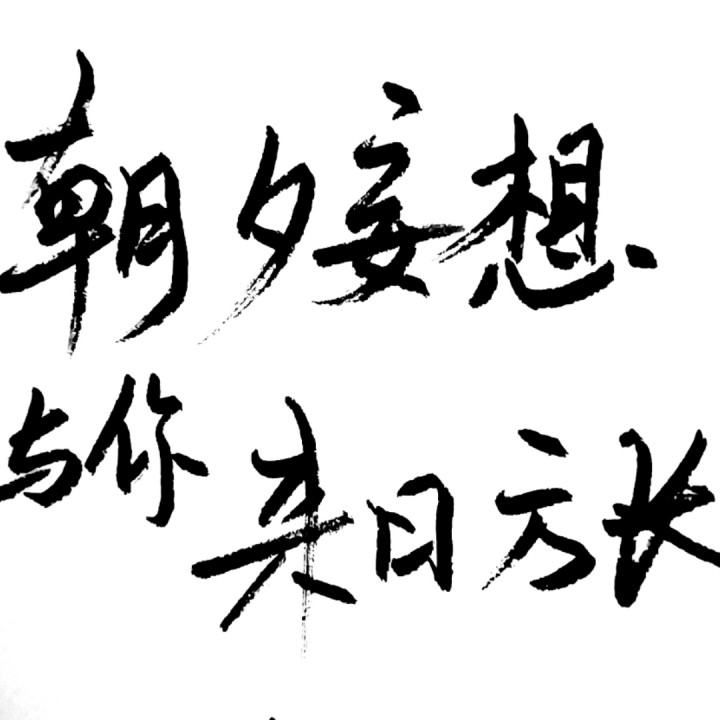 朝夕妄想
与你来日方长